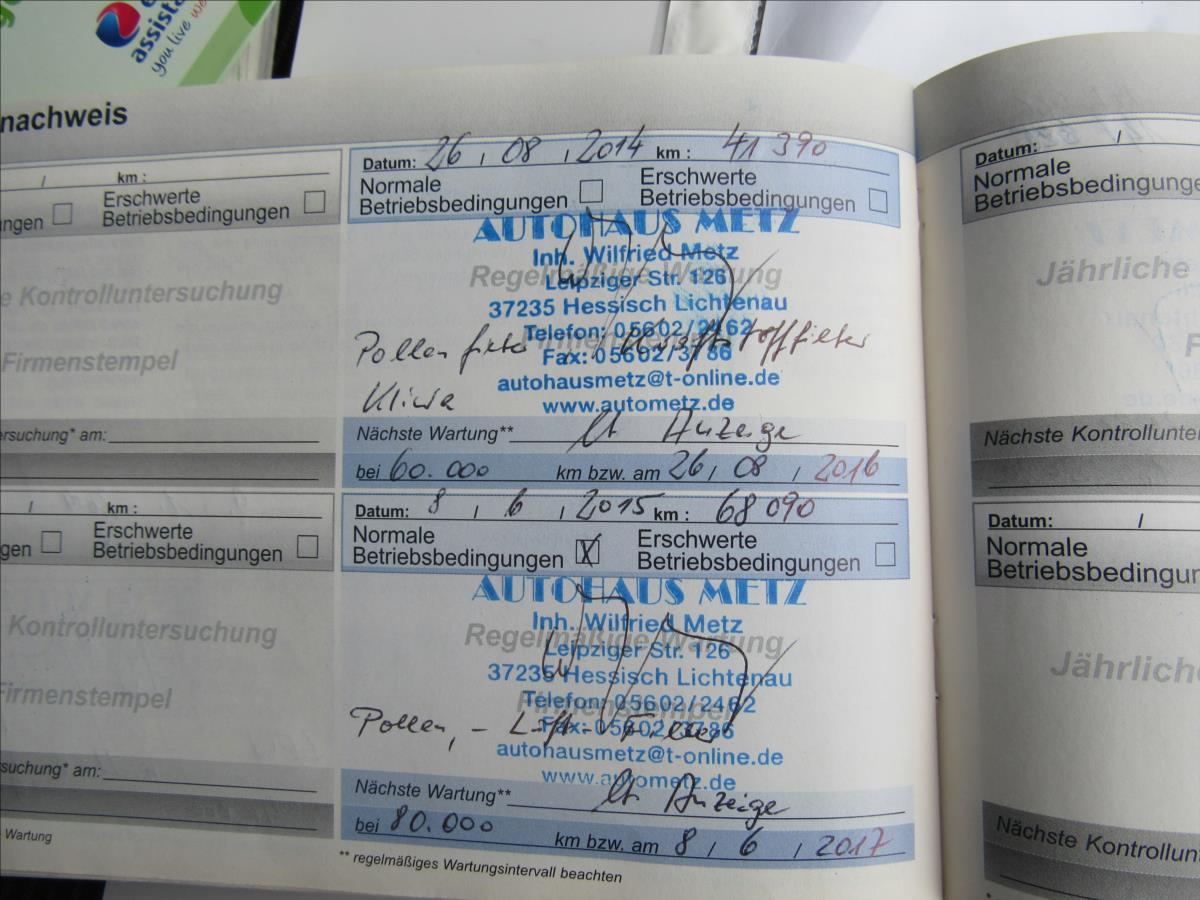 assista
you live we
nachweis
/ km :
ungen
Erschwerte
Betriebsbedingungen
e Kontrolluntersuchung
Firmenstempel
ersuchung* am:
/ km :
gen
Erschwerte
Betriebsbedingungen
Kontrolluntersuchung
Firmenstempel
suchung* am:
Wartung
Datum: 26 / 08 / 2014 km : 41 390
Normale
Betriebsbedingungen
Erschwerte
Betriebsbedingungen
AUTOHAUS METZ
Inh. Wilfried Metz
Regelmäßige Wartung
Leipziger Str. 126
37235 Hessisch Lichtenau
Telefon: 05602/2462
Firmenstempel
Pollenfilter Kraftstofffilter
Fax: 05602/3786
autohausmetz@t-online.de
Klima
www.autometz.de
Nächste Wartung** lt Anzeige
bei 60.000 km bzw. am 26 / 08 / 2016
Datum: 8 / 6 / 2015 km : 68 090
Normale
Betriebsbedingungen X
Erschwerte
Betriebsbedingungen
AUTOHAUS METZ
Inh. Wilfried Metz
Regelmäßige Wartung
Leipziger Str. 126
37235 Hessisch Lichtenau
Telefon: 05602/2462
Firmenstempel
Pollen, - Luft - Filter
Fax: 05602/3786
autohausmetz@t-online.de
www.autometz.de
Nächste Wartung** lt Anzeige
bei 80.000 km bzw. am 8 / 6 / 2017
** regelmäßiges Wartungsintervall beachten
Datum: /
Normale
Betriebsbedingunge
Jährliche
F
Nächste Kontrollunter
Datum: /
Normale
Betriebsbedingun
Jährliche
Nächste Kontrollun